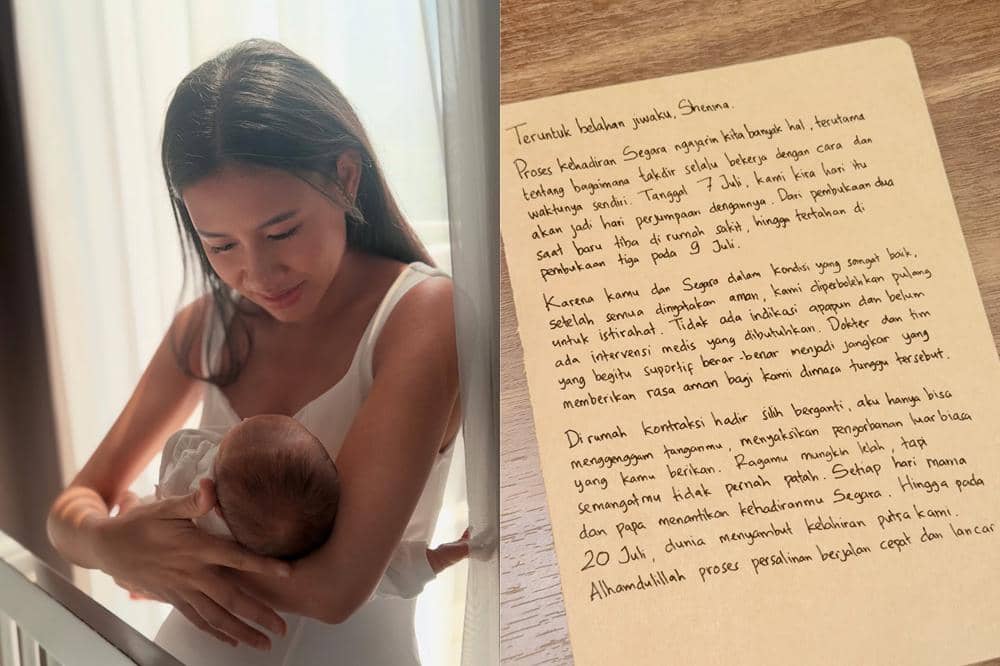 Teruntuk belahan jiwaku, Shenina.
Proses kehadiran Segara ngajarin kita banyak hal, terutama
tentang bagaimana takdir selalu bekerja dengan cara dan
waktunya sendiri. Tanggal 7 Juli, kami kira hari itu
akan jadi hari perjumpaan dengannya. Dari pembukaan dua
saat baru tiba di rumah sakit, hingga tertahan di
pembukaan tiga pada 9 Juli.
Karena kamu dan Segara dalam kondisi yang sangat baik,
setelah semua dinyatakan aman, kami diperbolehkan pulang
untuk istirahat. Tidak ada indikasi apapun dan belum
ada intervensi medis yang dibutuhkan. Dokter dan tim
yang begitu suportif benar-benar menjadi jangkar yang
memberikan rasa aman bagi kami dimasa tunggu tersebut.
Di rumah kontraksi hadir silih berganti, aku hanya bisa
menggenggam tanganmu, menyaksikan pengorbanan luar biasa
yang kamu berikan. Ragamu mungkin lelah, tapi
semangatmu tidak pernah patah. Setiap hari mama
dan papa menantikan kehadiranmu Segara. Hingga pada
20 Juli, dunia menyambut kelahiran putra kami.
Alhamdulillah proses persalinan berjalan cepat dan lancar